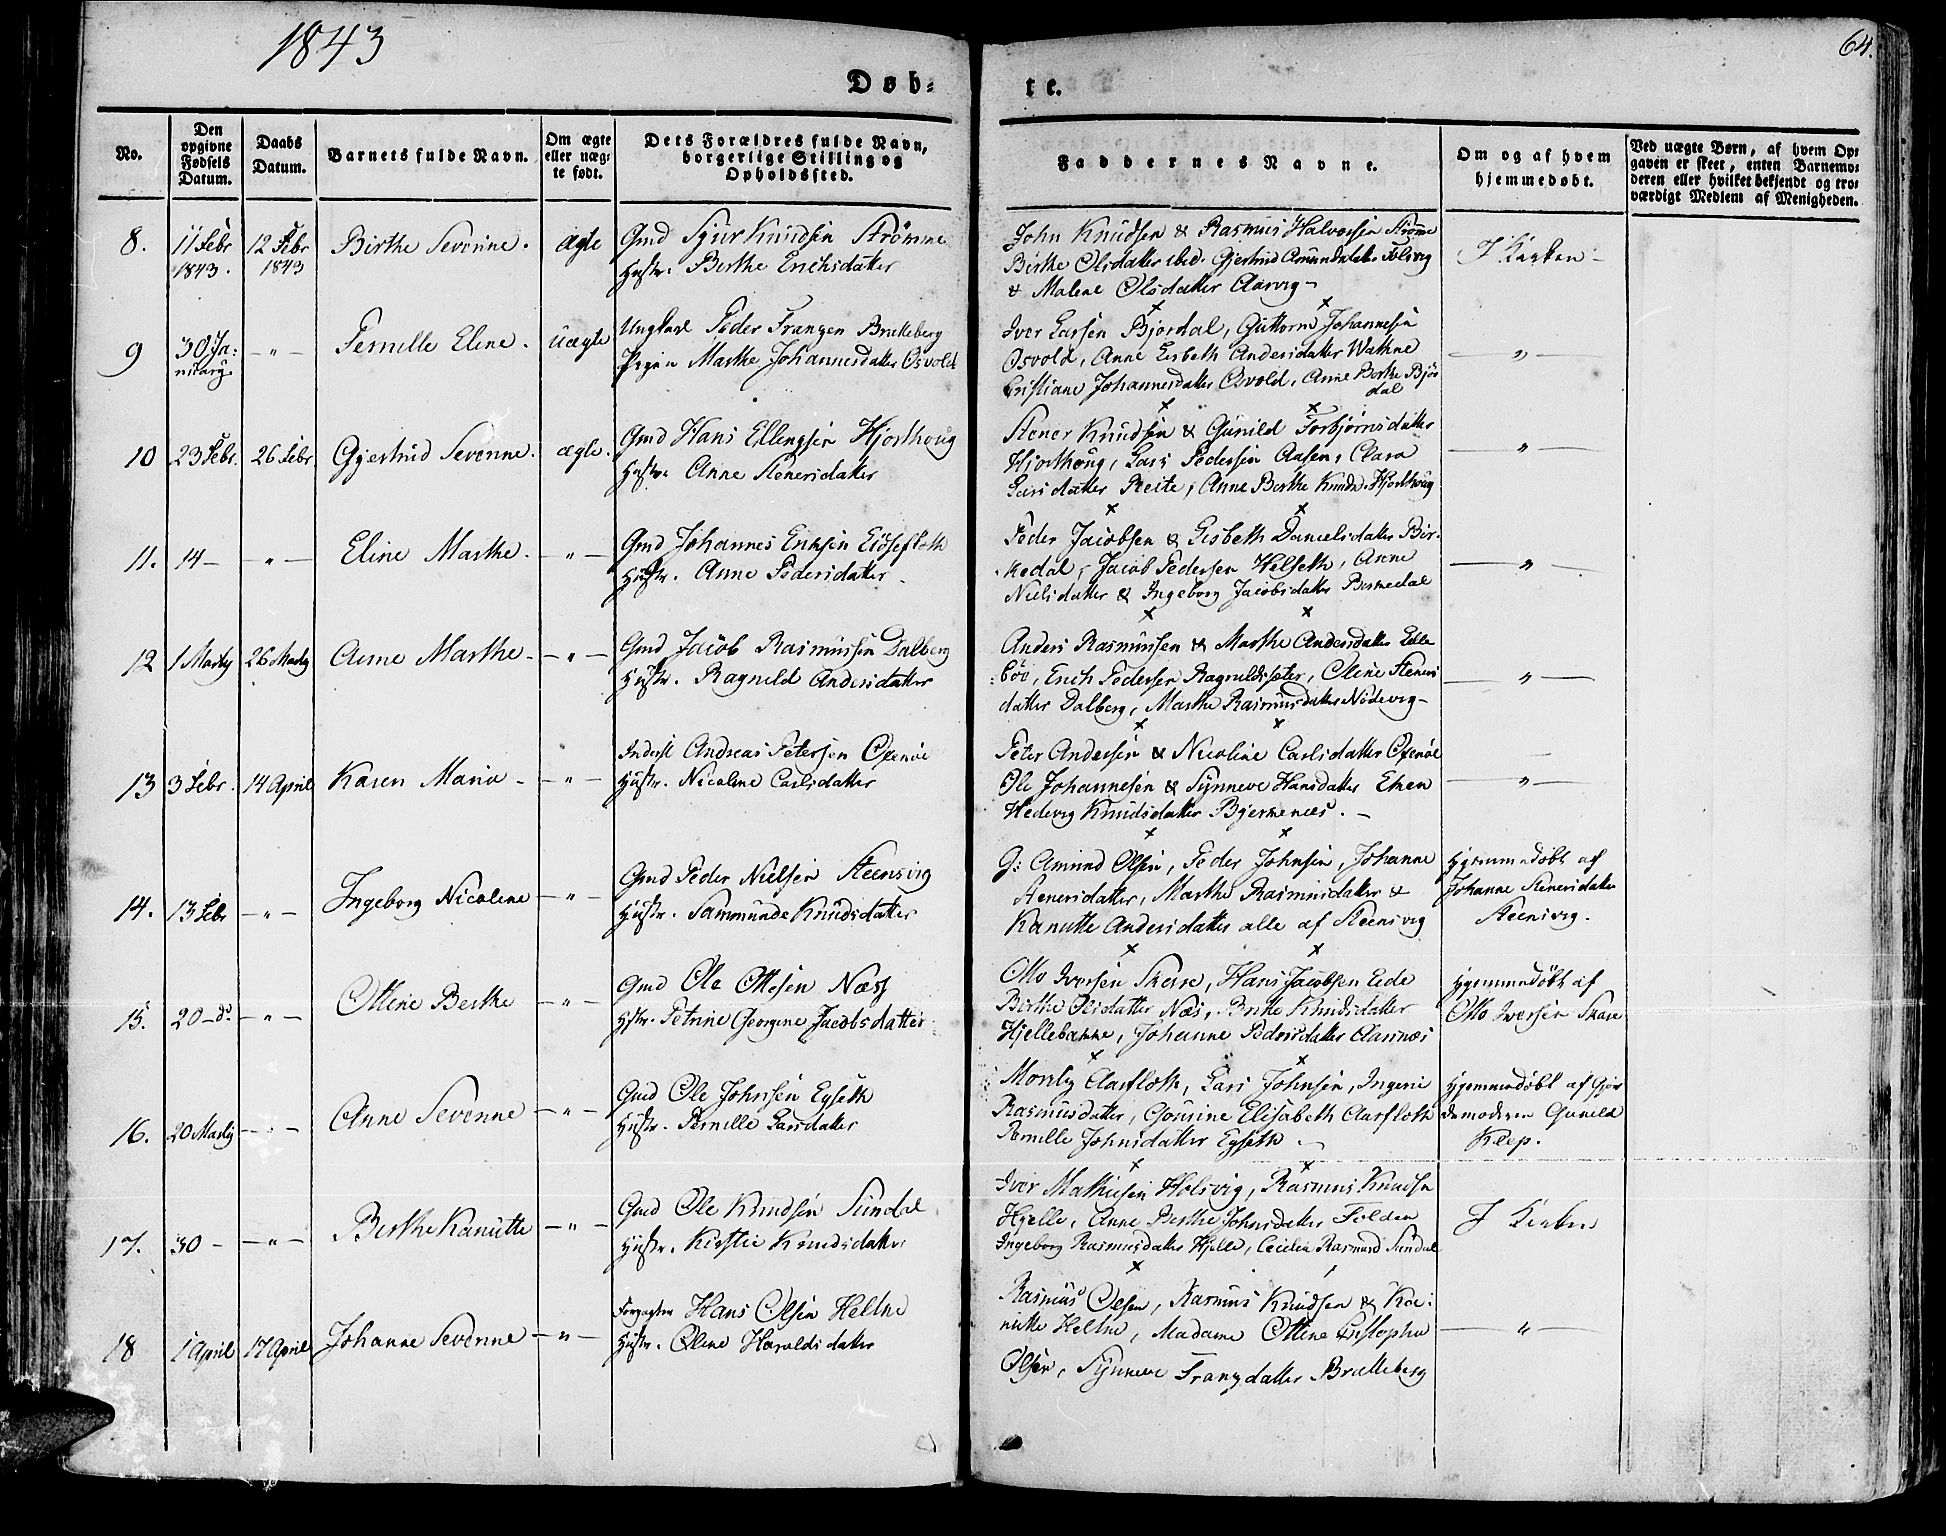 1843
64.
Døb-
te.
No.
Den opgivne Fødsels Datum.
Daabs Datum.
Barnets fulde Navn.
Om ægte eller uæg-te født.
Dets Forældres fulde Navn, borgerlige Stilling og Opholdssted.
Faddernes Navne.
Om og af hvem hjemmedøbt.
Ved uægte Børn, af hvem Op-
gaven er skeet, enten Barnemo-
deren eller hvilket bekjendt og tro-
værdigt Medlem af Menigheden.
8.
11 Febr
1843.
12 Febr
1843
Birthe Severine.
ægte
Gmd Sjur Knudsen Strømme
Hustr. Berthe Erichsdatter
John Knudsen & Rasmus Halvorsen Strøme
Birthe Olsdatter ibid. Gjertrud Amundsdatter Folsvig
& Malene Olsdatter Aarvig -
I Kirken -
9
30 Ja:
nuary.
- " -
Pernille Eline.
uægte
Ungkarl Peder Frangen Bratteberg
Pigen Marthe Johannesdatter Osvold
Iver Larsen Bjordal, Guttorm Johannesen
Osvold, Anne Lisbeth Andersdatter Wathne
Cristiane Johannesdatter Osvold, Anne Berthe Bjør
dal
- " -
10
23 Febr.
26 Febr
Gjertrud Severine.
ægte.
Gmd Hans Ellingsen Hjorthoug
Hustr. Anne Stenersdatter
Stener Knudsen & Gunild Torbjørnsdatter
Hjorthoug, Lars Pedersen Aasen, Clara
Larsdatter Reite, Anne Berthe Knudsd. Hjorthoug
- " -
11.
14 -
- " -
Eline Marthe.
- " -
Gmd Johannes Eriksen Eidsefloth
Hustr. Anne Pedersdatter.
Peder Jacobsen & Lisbeth Danielsdatter Bir-
kedal, Jacob Pedersen Helseth, Anne
Nielsdatter & Ingeborg Jacobsdatter Berkedal
- " -
12
1 Marty
26 Marty
Anne Marthe.
- " -
Gmd Jacob Rasmussen Dalberg
Hustr. Ragnild Andersdatter
Anders Rasmussen & Marthe Andersdatter Edle
bøe, Erich Pedersen Ragnildsæter, Oline Steners
datter Dalberg, Marthe Rasmusdatter Nødevig -
- " -
13
3 Febr.
14 April
Karen Maria -
- " -
Inderst Andreas Petersen Oxenøe
Hustr. Nicoline Carlsdatter
Peter Andersen & Nicoline Carlsdatter Oxenøe
Ole Johannesen & Synneve Hansdatter
Hedevig Knudsdatter Bjerkenæs. -
- " -
14.
13 Febr
- " -
Ingeborg Nicoline
- " -
Gmd Peder Nielsen Steensvig
Hustr. Sammunde Knudsdatter
G: Amund Olsen, Peder Johnsen, Johanne
Stenersdatter, Marthe Rasmusdatter &
Kanutte Andersdatter alle af Steensvig
Hjemmedøbt af
Johanne Stenersdatter
Steensvig.
15.
20 - do
- " -
Ottine Berthe
- " -
Gmd Ole Ottesen Næss
Hstr. Petrine Georgine Jacobsdatter
Otto Iversen Skare, Hans Jacobsen Eide
Birthe Olsdatter Næs, Knudsdatter
Hjellebakke, Johanne Pedersdatter Aarnæs
Hjemmedøbt af
Otto Iversen Skare
16.
20 Marty
- " -
Anne Severine
- " -
Gmd Ole Johnsen Egseth
Hustr. Pernille Larsdatter
Moritz Aarfloth, Lars Johnsen, Ingerie
Rasmusdatter, Elisabeth Aarfloth
Pernille Johnsdatter Egseth -
Hjemmedøbt af Gjor
demoderen Gunild
Kleep.
17.
30 -
- " -
Berthe Kanutte
- " -
Gmd Ole Knudsen Sundal
Hustr. Kirstie Knudsdatter
Iver Mathiesen Holsvig, Rasmus Knudsen
Hjelle, Anne Berthe Johnsdatter Folden
Ingeborg Rasmusdatter Hjelle, Cecilia Rasmusd Sundal
I Kirken
18
1 April
17 April
Johanne Severine
- " -
Forpagter Hans Olsen Heltne
Hustr. Oline Haraldsdatter
Rasmus Olsen, Rasmus Knudsen & Ka:
nutte Heltne, Madame Ottine Cristopha
Olsen, Synneve Frangdatter Bratteberg
- " -